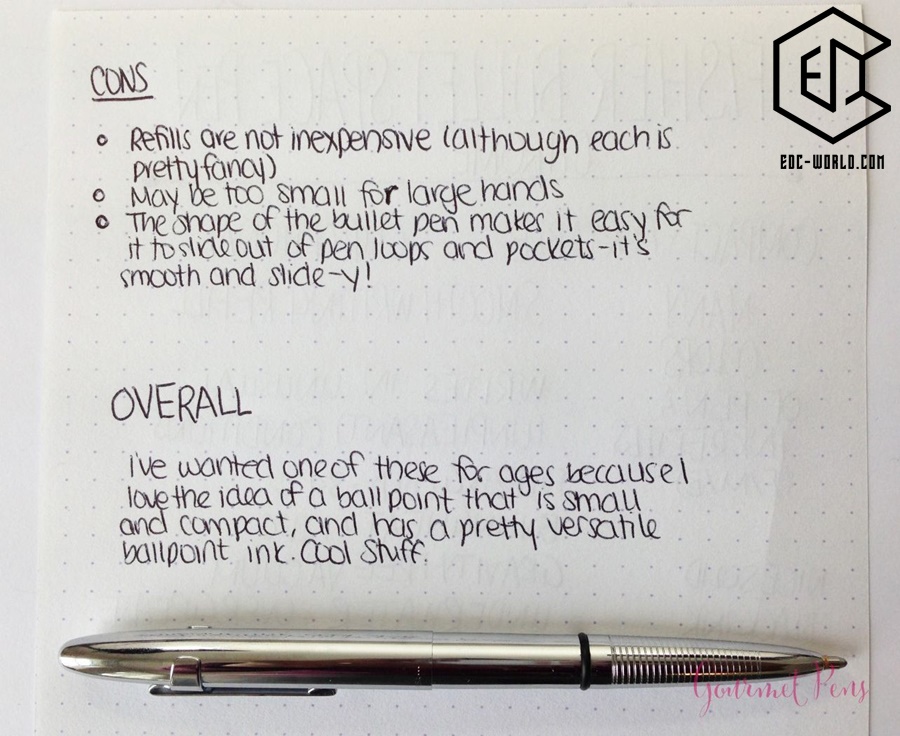 CONS
EDC
EDC-WORLD.COM
Refills are not inexpensive (although each is
pretty fancy)
May be too small for large hands
The shape of the bullet pen makes it easy for
it to slide out of pen loops and pockets-it's
smooth and slide-y!
OVERALL
i've wanted one of these for ages because I
love the idea of a ball point that is small
and compact, and has a pretty versatile
ballpoint ink. Cool Stuff.
Gourmet Pens